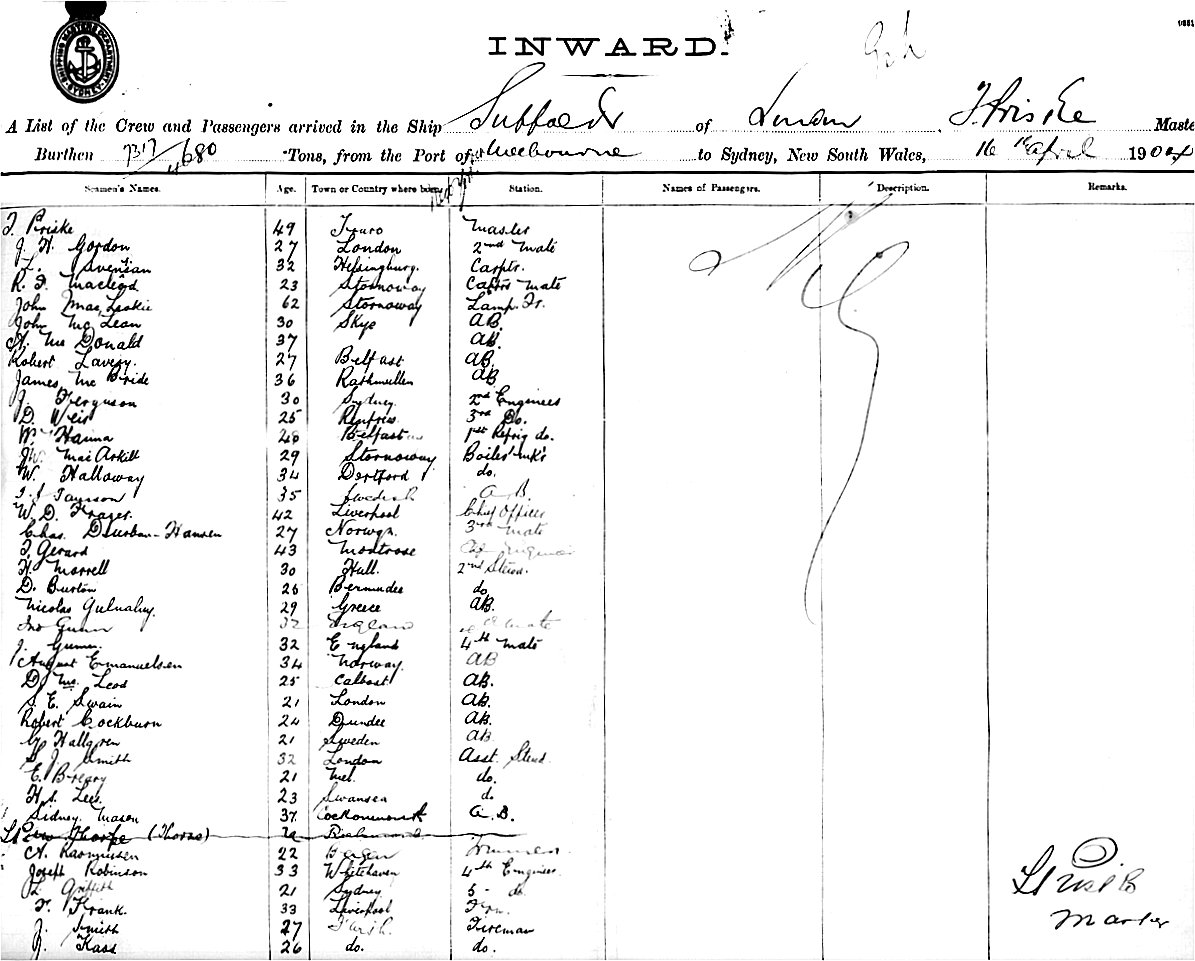 SHIPPING MASTER'S DEPARTMENT SYDNEY
INWARD.
A List of the Crew and Passengers arrived in the Ship Suffolk of London T. Priske Maste
Burthen 7317/4680 Tons, from the Port of Melbourne to Sydney, New South Wales, 16th April 1904
Seamen's Names. Age. Town or Country where born. Station. Names of Passengers. Description. Remarks.
T. Priske 49 Truro Master
J. H. Gordon 27 London 2nd Mate
L. Svensan 32 Helsingburg. Carptr.
R. F. Macleod 23 Stornoway Mate
John Mac Leskie 62 Stornoway Lamp Tr.
John Mc Lean 30 Skye AB.
A. Mc Donald 37 AB.
Robert Lavery. 27 Belfast AB.
James Mc Bride 36 Rathmullen AB
J. Ferguson 30 Sydney. 2nd Engineer
D. Weir 25 Renfrew. 3rd Do.
Wm Hanna 28 Belfast 1st Refrig do.
MacArkill 29 Stornoway Boilermkr
W. Hallaway 34 Dertford do.
35 Swedish A.B.
W. D. Frazer. 42 Liverpool Chief Officer
Chas. Durban-Hansen 27 Norwgn. 3rd Mate
T. Gerard 43 Montrose Engineer
H. Morrell 30 Hull. 2nd Stewd.
D. Burton 25 Bermudes do
Nicolas 29 Greece AB.
Jno Gunn 32 England Mate
J. Gunn. 32 England 4th Mate
August Emanuelsen 34 Norway. AB
D. Mc Leod 25 Calbost AB.
S. E. Swain 21 London AB.
Robert Cockburn 24 Dundee AB.
Hallgren 21 Sweden AB
S. J. Smith 32 London Asst. Stewd.
E. Breary 21 Mel. do.
H. S. Lees. 23 Swansea do
Sidney Mason 37 A.B.
Thorpe (Thorse) Richmond
A. Rasmussen 22 Bergen Trimmer
Joseph Robinson 33 Whitehaven 4th Engineer
L. Griffith 21 Sydney 5- do.
F. Frank. 33 Liverpool Frm.
J. Smith 27 Fireman
J. Kass 26 do. do.
Priske
Master